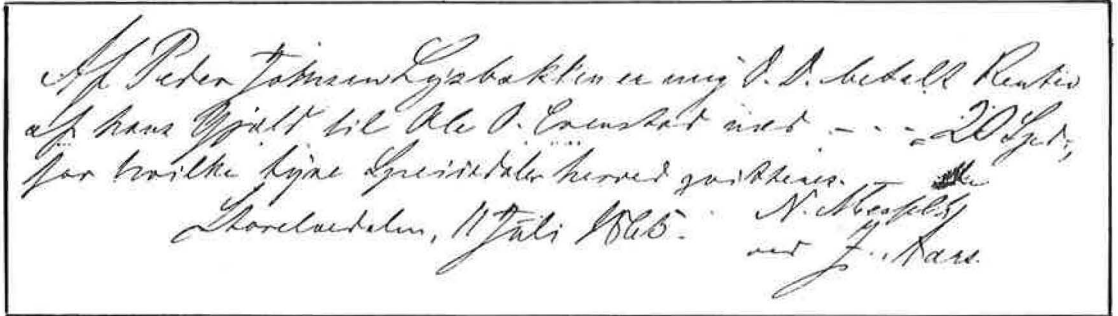 Af Peder Johnsen Lysbakken er mig d. D. betalt Renter
af hans Gjæld til Ole O. Evenstad med - - - 20 Spd.,
for hvilke tyve Speciedaler herved qvitteres.
Storelvedalen, 11 Juli 1865. N.
ved J. Aars.